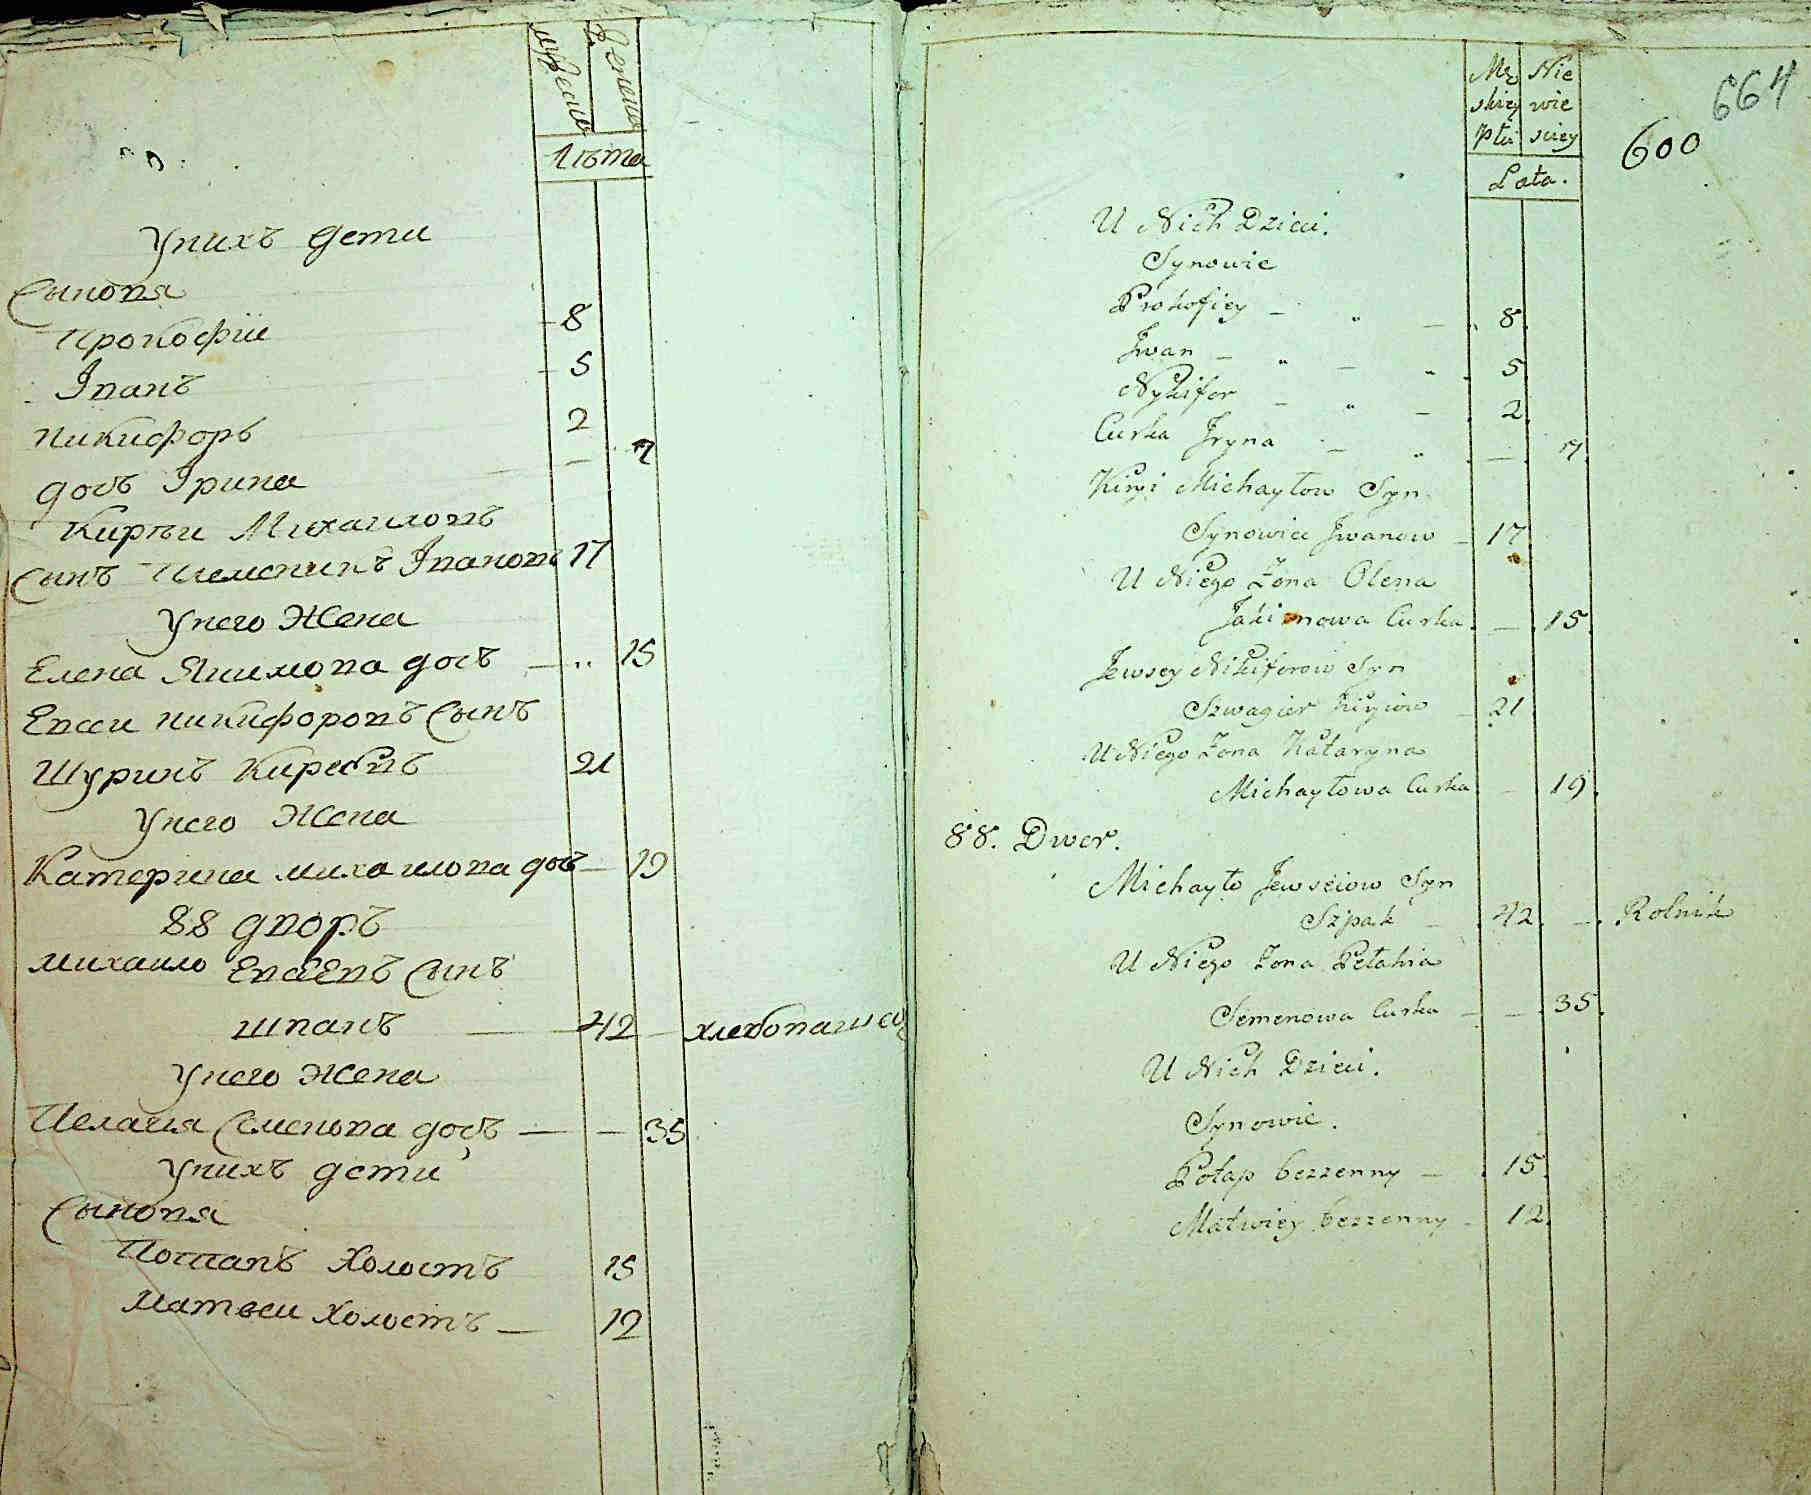 мужеска
женска
Лѣта
У нихъ дети
Сыновя
Прокофіи 8
Іванъ 5
Никифоръ 2
дочь Ірина — 7
Кирѣи Михаиловъ
Сынъ племеникъ Івановъ 17
У него Жена
Елена Якимова дочь — .. 15
Евсеи Никифоровъ Сынъ
Шуринъ Киреевъ 21
У него Жена
Катерина михаилова дочь — 19
88 дворъ
Михаило Евсеевъ Сынъ
шпакъ — 42 — хлебопашец
У него жена
Пелагия Семенова дочь — — 35
У нихъ дети
Сыновя
Потапъ Холостъ 15
Матвеи Холостъ — 12
Mę Nie
skiey wie
Płci sciey
Lata.
664
600
U Nich Dzieci.
Synowie
Prokofiey — " — 8.
Jwan — " — " 5
Nykifor — " — 2.
Curka Jryna — " — 7.
Kiryi Michayłow Syn
Synowiec Jwanow — 17
U Niego Zona Olena
Jakimowa Curka. — 15.
Jewsey Nikiforow Syn
Szwagier Kiryiow — 21
U Niego Zona Kataryna
Michayłowa Curka — 19.
88. Dwor.
Michayło Jewseiow Syn
Szpak — 42. — Rolnik
U Niego Zona Pełahia
Semenowa Curka — — 35.
U Nich Dzieci.
Synowie.
Potap bezzenny — 15.
Matwiey bezzenny — 12.